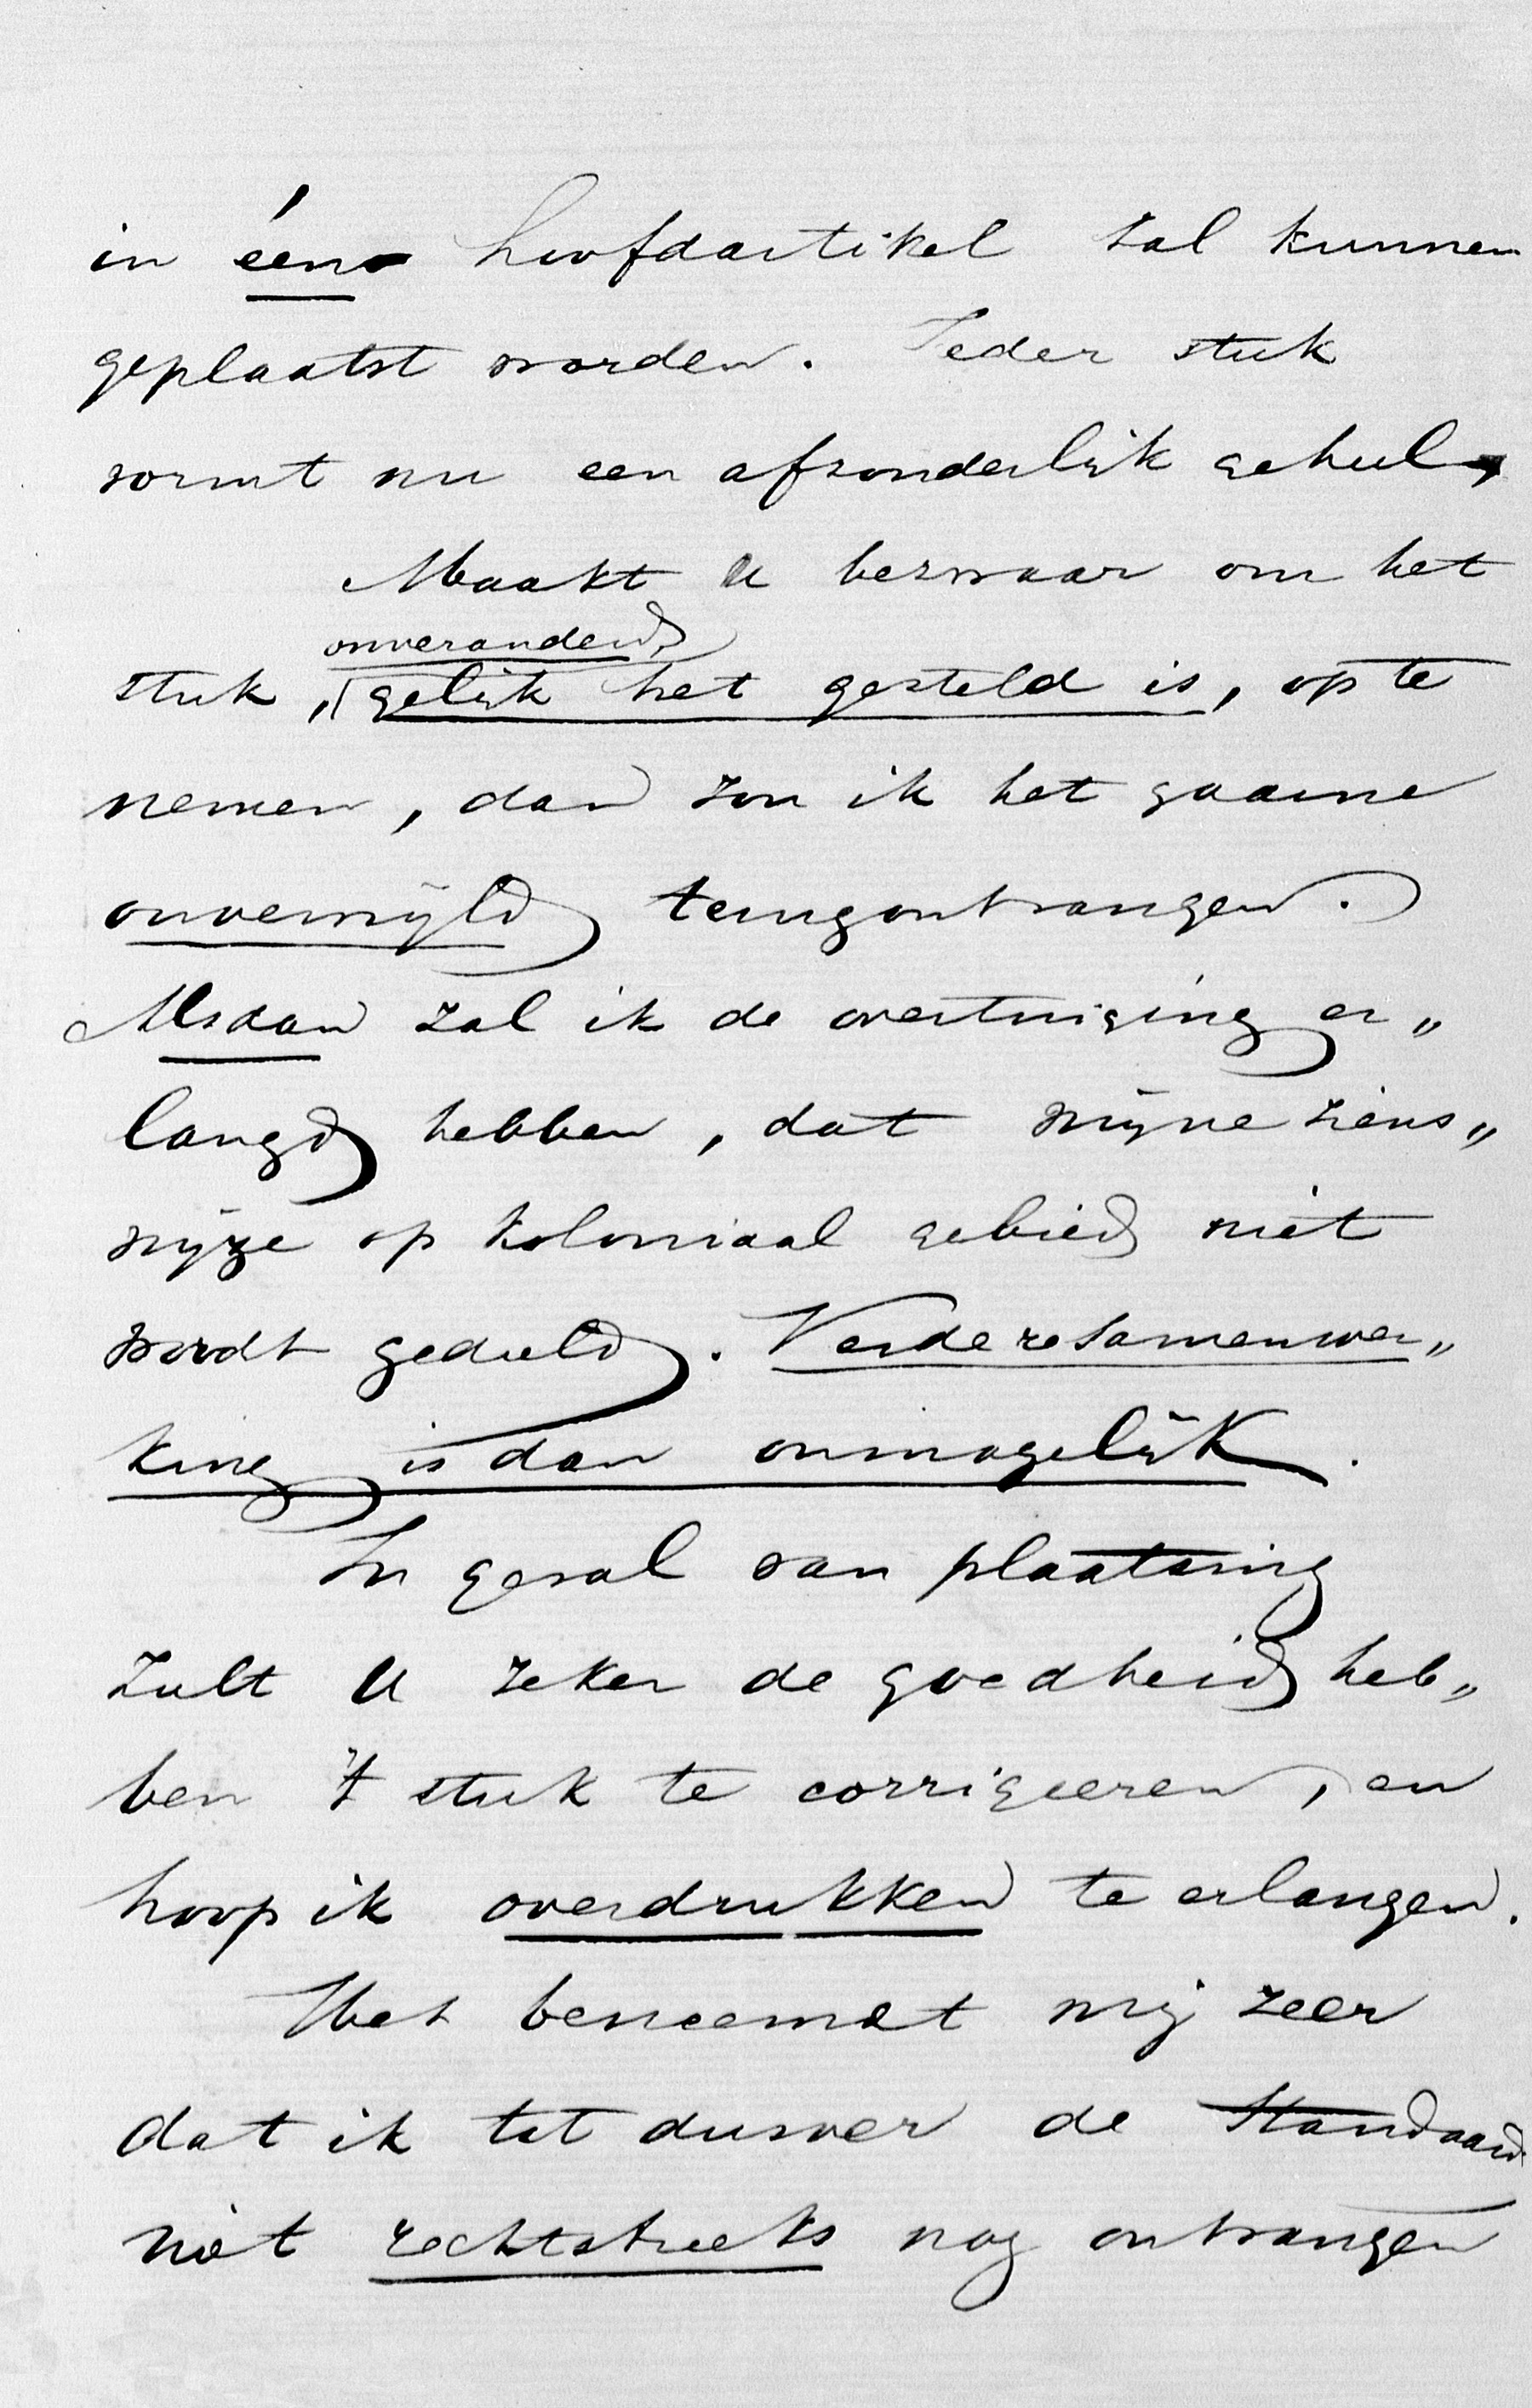 in één hoofdartikel zal kunnen
geplaatst worden. Ieder stuk
vormt nu een afzonderlijk geheel.
Maakt U bezwaar om het
onveranderd,
stuk, gelijk het gesteld is, op te
nemen, dan zou ik het gaarne
onverwijld terugontvangen.
Alsdan zal ik de overtuiging er„
langd hebben, dat mijne ziens„
wijze op koloniaal gebied niet
wordt geduld. Verdere samenwer„
king is dan onmogelijk.
In geval van plaatsing
zult U zeker de goedheid heb„
ben 't stuk te corrigeeren, en
hoop ik overdrukken te erlangen.
Het bevreemdt mij zeer
dat ik tot dusver de Standaard
niet rechtstreeks nog ontvangen